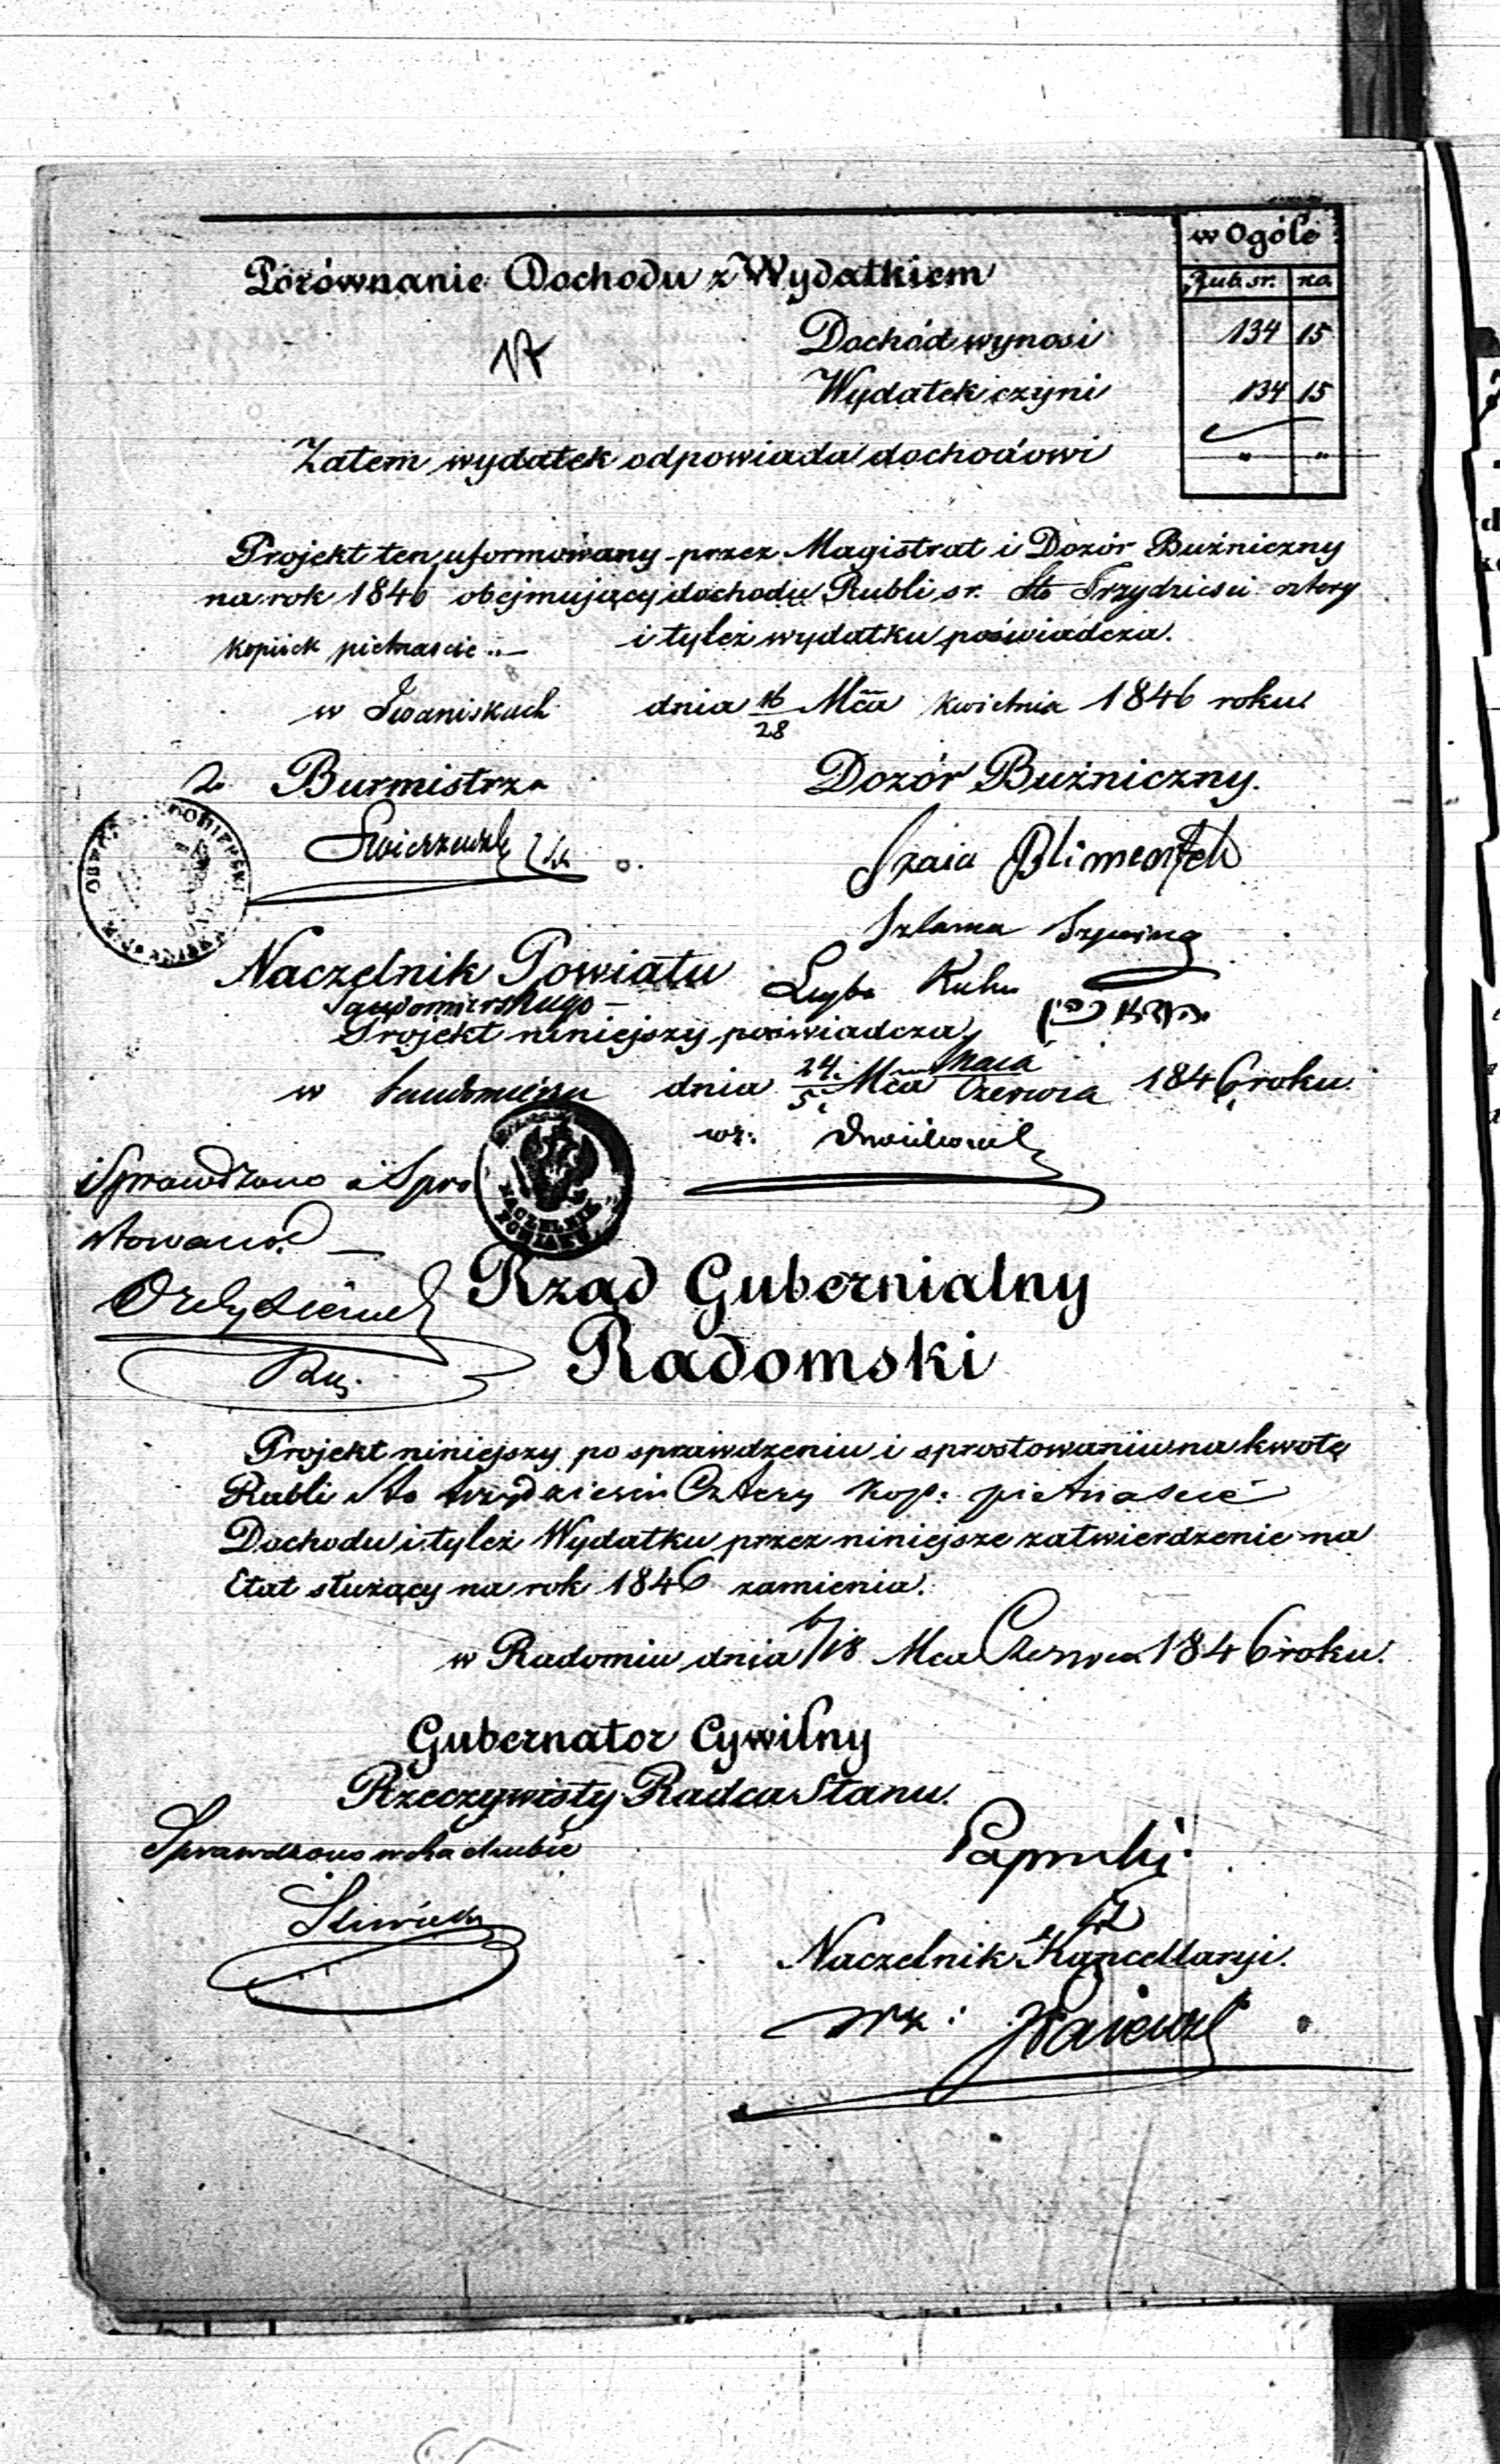 w Ogóle
Rub. sr. ko.
Porównanie Dochodu z Wydatkiem
Dochód wynosi 134 15
Wydatek czyni 134 15
Zatem wydatek odpowiada dochodowi " "
Projekt ten uformowany przez Magistrat i Dozór Buźniczny
na rok 1846 obejmujący dochodu Rubli sr. Sto Trzydzieści cztery
kopiiek pietnascie i tyleż wydatku poświadcza.
w Iwaniskach dnia 16/28 Mca kwietnia 1846 roku
Burmistrza Dozór Buźniczny.
Szaia
Szlama
Naczelnik Powiatu
Sandomierskiego
Projekt niniejszy poświadcza
w Sandomierzu dnia 24./5. Mca Maia/Czerwca 1846 roku
wz:
NACZELNIK POWIATU
Sprawdzono i Spro
stowano.
Rząd Gubernialny
Radomski
Projekt niniejszy po sprawdzeniu i sprostowaniu na kwotę
Rubli sto trzydzieści Cztery kop: pietnaście
Dochodu i tyleż Wydatku przez niniejsze zatwierdzenie na
Etat służący na rok 1846 zamienia.
w Radomiu dnia 6/18 Mca Czerwca 1846 roku.
Gubernator Cywilny
Rzeczywisty Radca Stanu.
Sprawdzono
Naczelnik Kancellaryi.
wz: